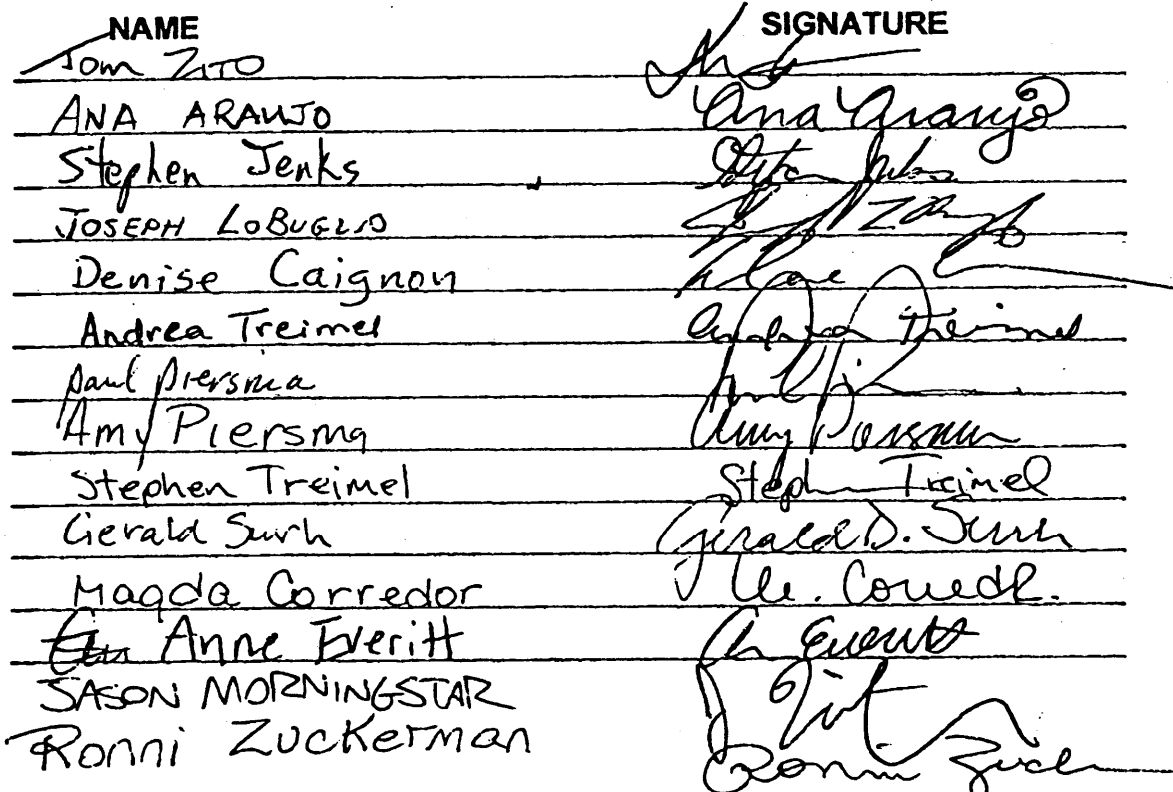 NAME SIGNATURE
Tom ZITO
ANA ARAUJO Ana Araujo
Stephen Jenks
JOSEPH LOBUGLIO
Denise Caignon
Andrea Treimel Andrea Treimel
paul piersma
Amy Piersma Amy Piersma
Stephen Treimel Steph Treimel
Gerald Surh Gerald D. Surh
Magda Corredor M. Corredor
Anne Everitt An Everitt
SASON MORNINGSTAR
Ronni Zuckerman Ronni Zuck